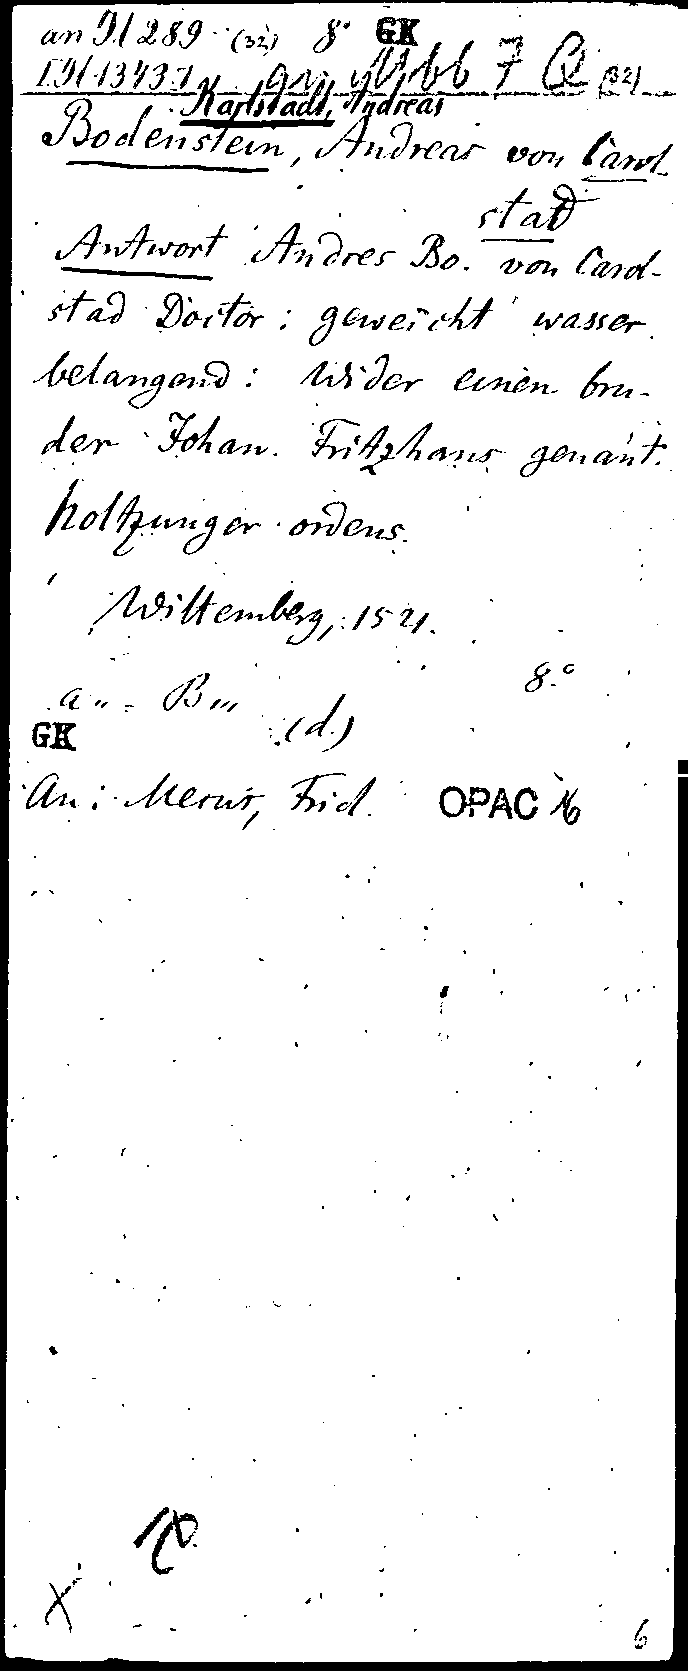 an Il 289 (32) 8° GK
Il 1343:1 an 7 Q (32)
Karlstadt, Andreas
Bodenstein, Andreas von Carol-
stad
Antwort Andres Bo. von Carol-
stad Doctor: geweicht wasser
belangend: Wider einen bru-
der Johan. Fritzhans genant.
holtzuger ordens.
Wittemberg, 1521.
8.°
a„ = B„,
GK (d.)
An: Frid. OPAC
6